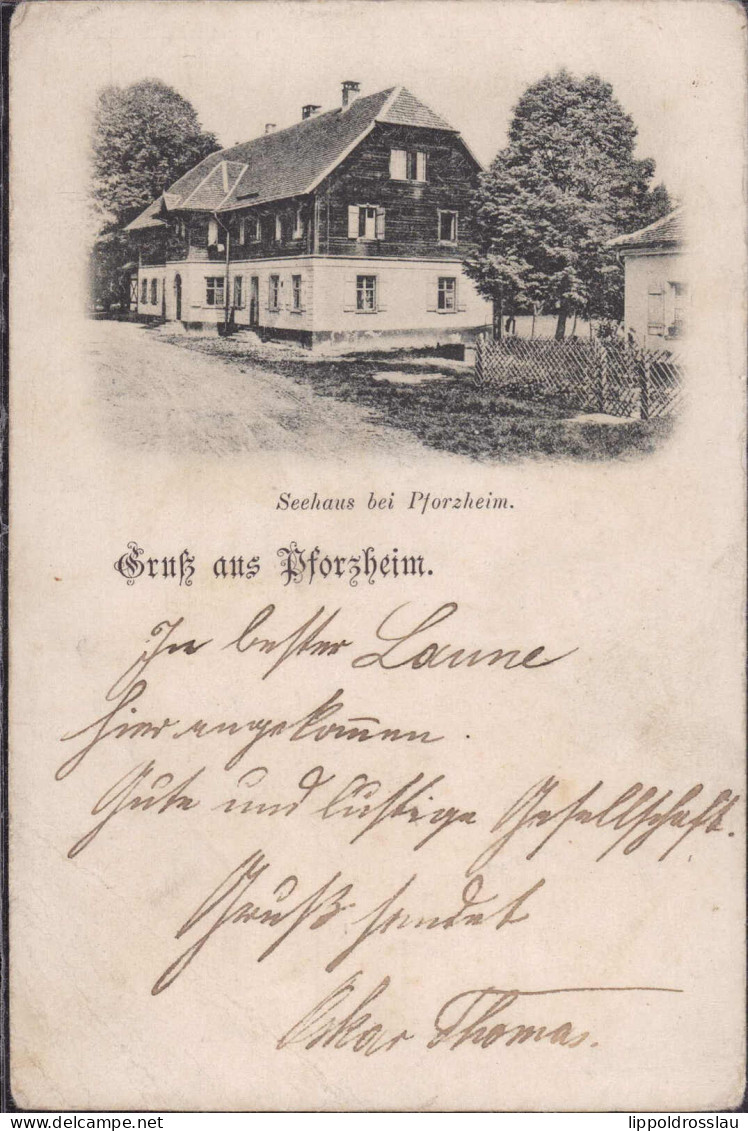 Seehaus bei Pforzheim.
Gruß aus Pforzheim.
In bester Laune
hier angekom̄en.
Gute und lustige Gesellschaft.
Gruß sendet
Oskar Thomas.
lippoldrosslau